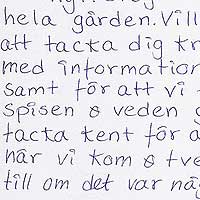 hela gården. Vill
att tacka dig
med information
samt för att vi
spisen & veden
tacka Kent för a
när vi kom & tve
till om det var nå